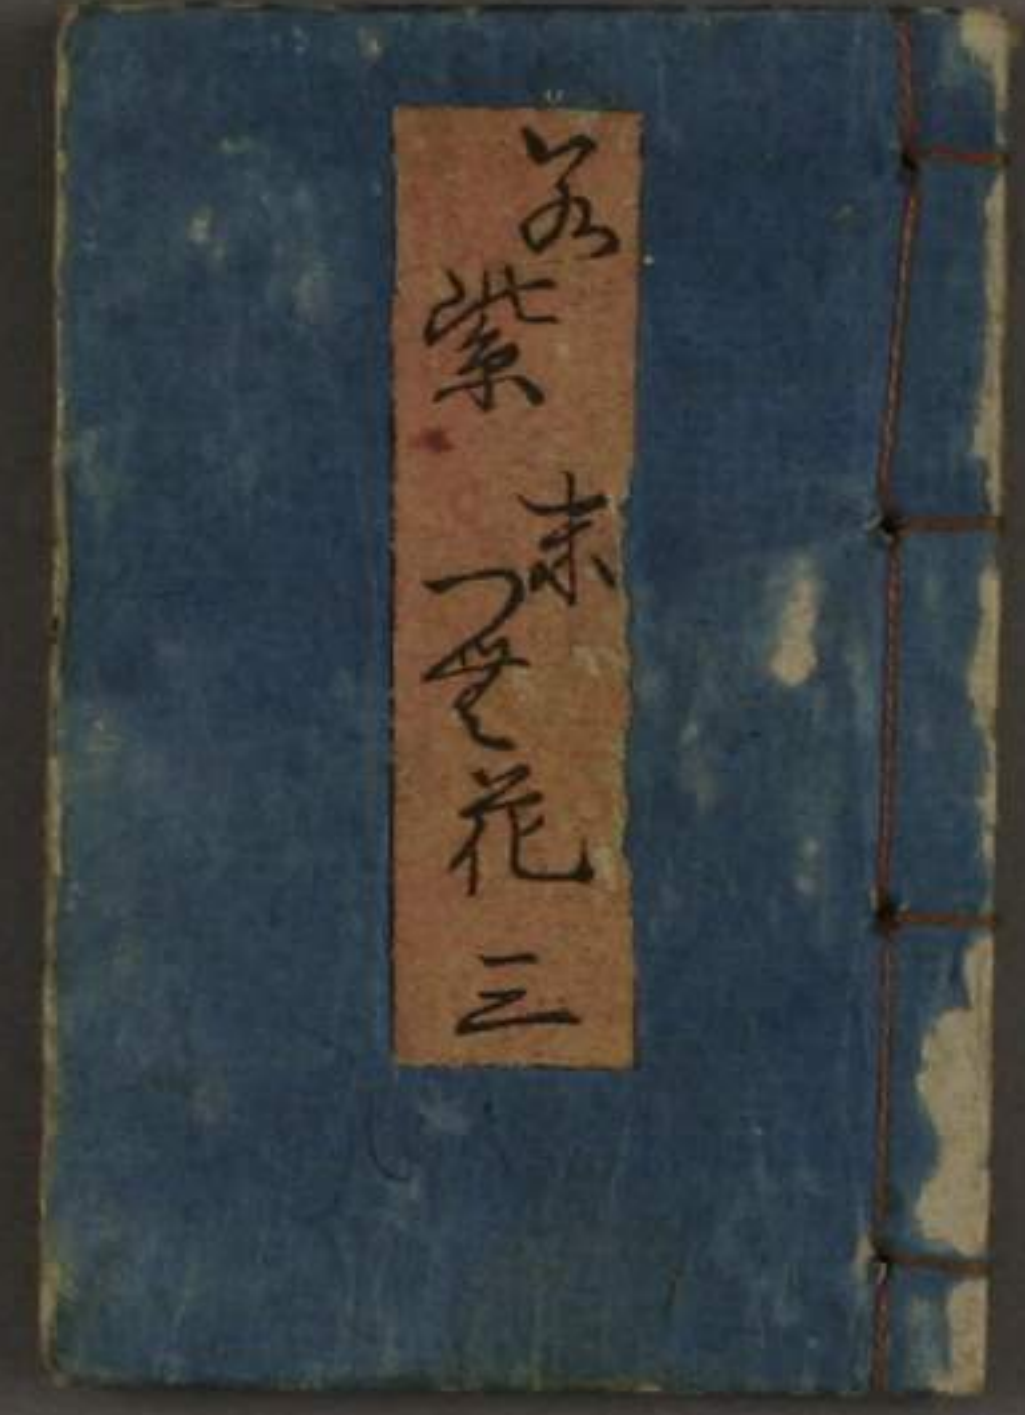 若紫
末つむ花
三